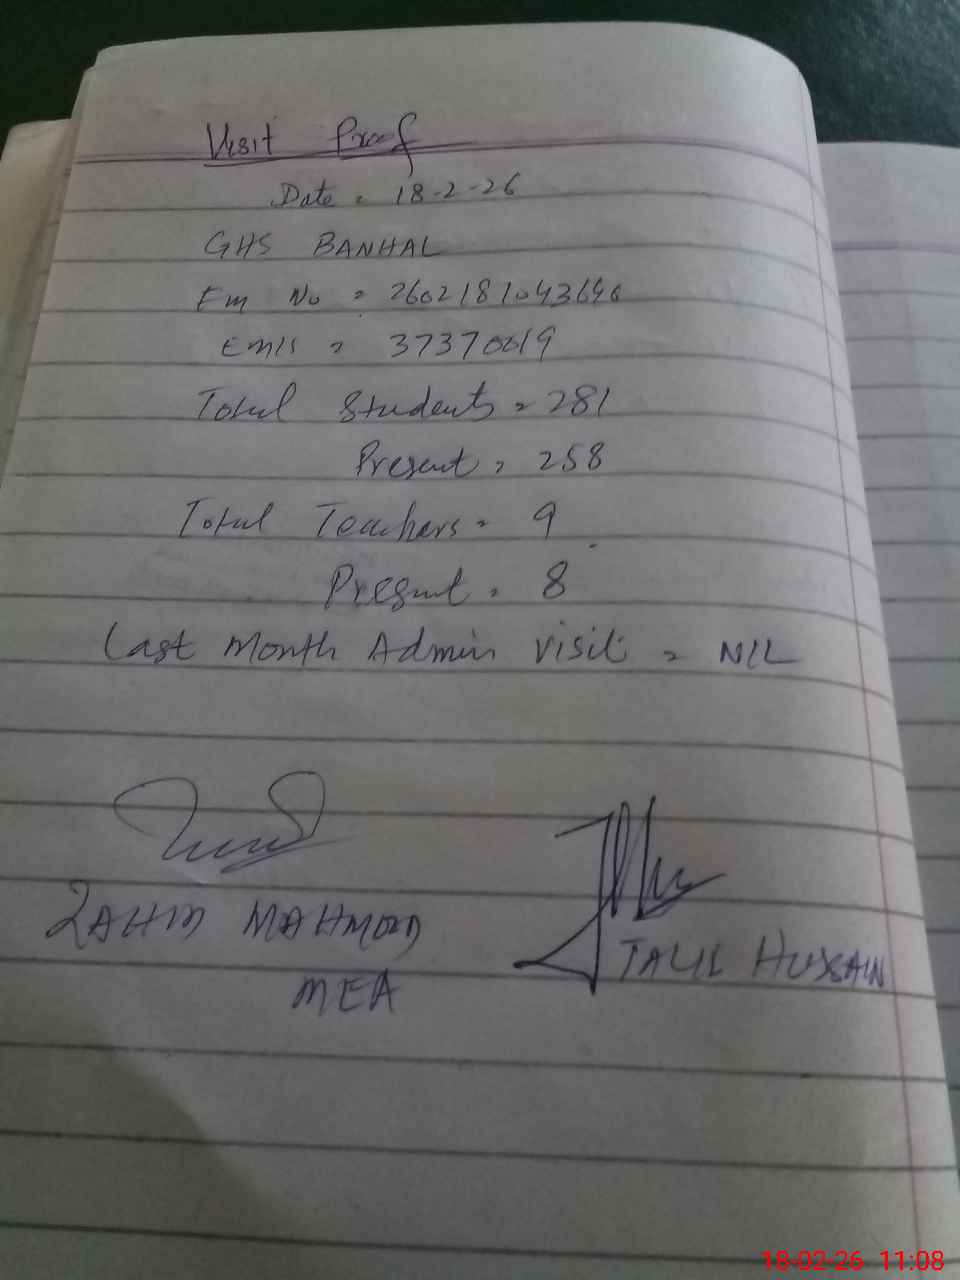 Visit Proof
Date = 18-2-26
GHS BANHAL
Em No = 2602181043646
EMIS = 37370019
Total Students = 281
Present = 258
Total Teachers = 9
Present = 8
Last Month Admin visit = NIL
ZAHID MAHMOOD
MEA
HUSSAIN
18-02-26 11:08